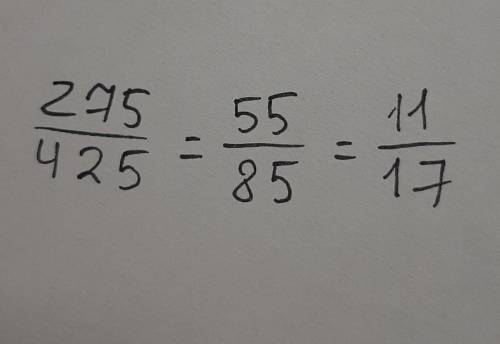 275/425 = 55/85 = 11/17